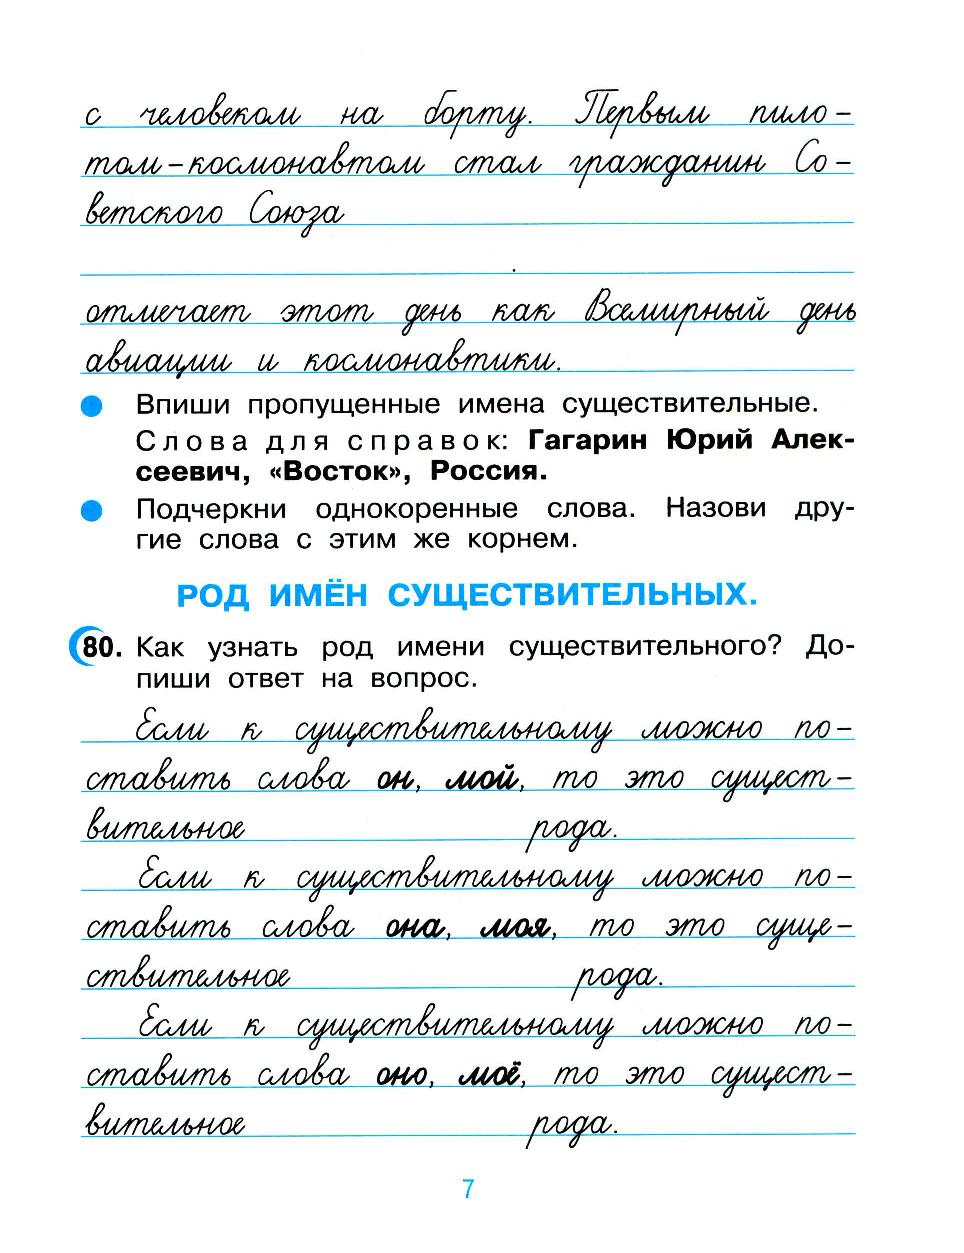 с человеком на борту. Первым пило-
том-космонавтом стал гражданин Со-
ветского Союза
.
отмечает этот день как Всемирный день
авиации и космонавтики.
Впиши пропущенные имена существительные.
Слова для справок: Гагарин Юрий Алек-
сеевич, «Восток», Россия.
Подчеркни однокоренные слова. Назови дру-
гие слова с этим же корнем.
РОД ИМЁН СУЩЕСТВИТЕЛЬНЫХ.
80. Как узнать род имени существительного? До-
пиши ответ на вопрос.
Если к существительному можно по-
ставить слова он, мой, то это сущест-
вительное рода.
Если к существительному можно по-
ставить слова она, моя, то это суще-
ствительное рода.
Если к существительному можно по-
ставить слова оно, моё, то это сущест-
вительное рода.
7